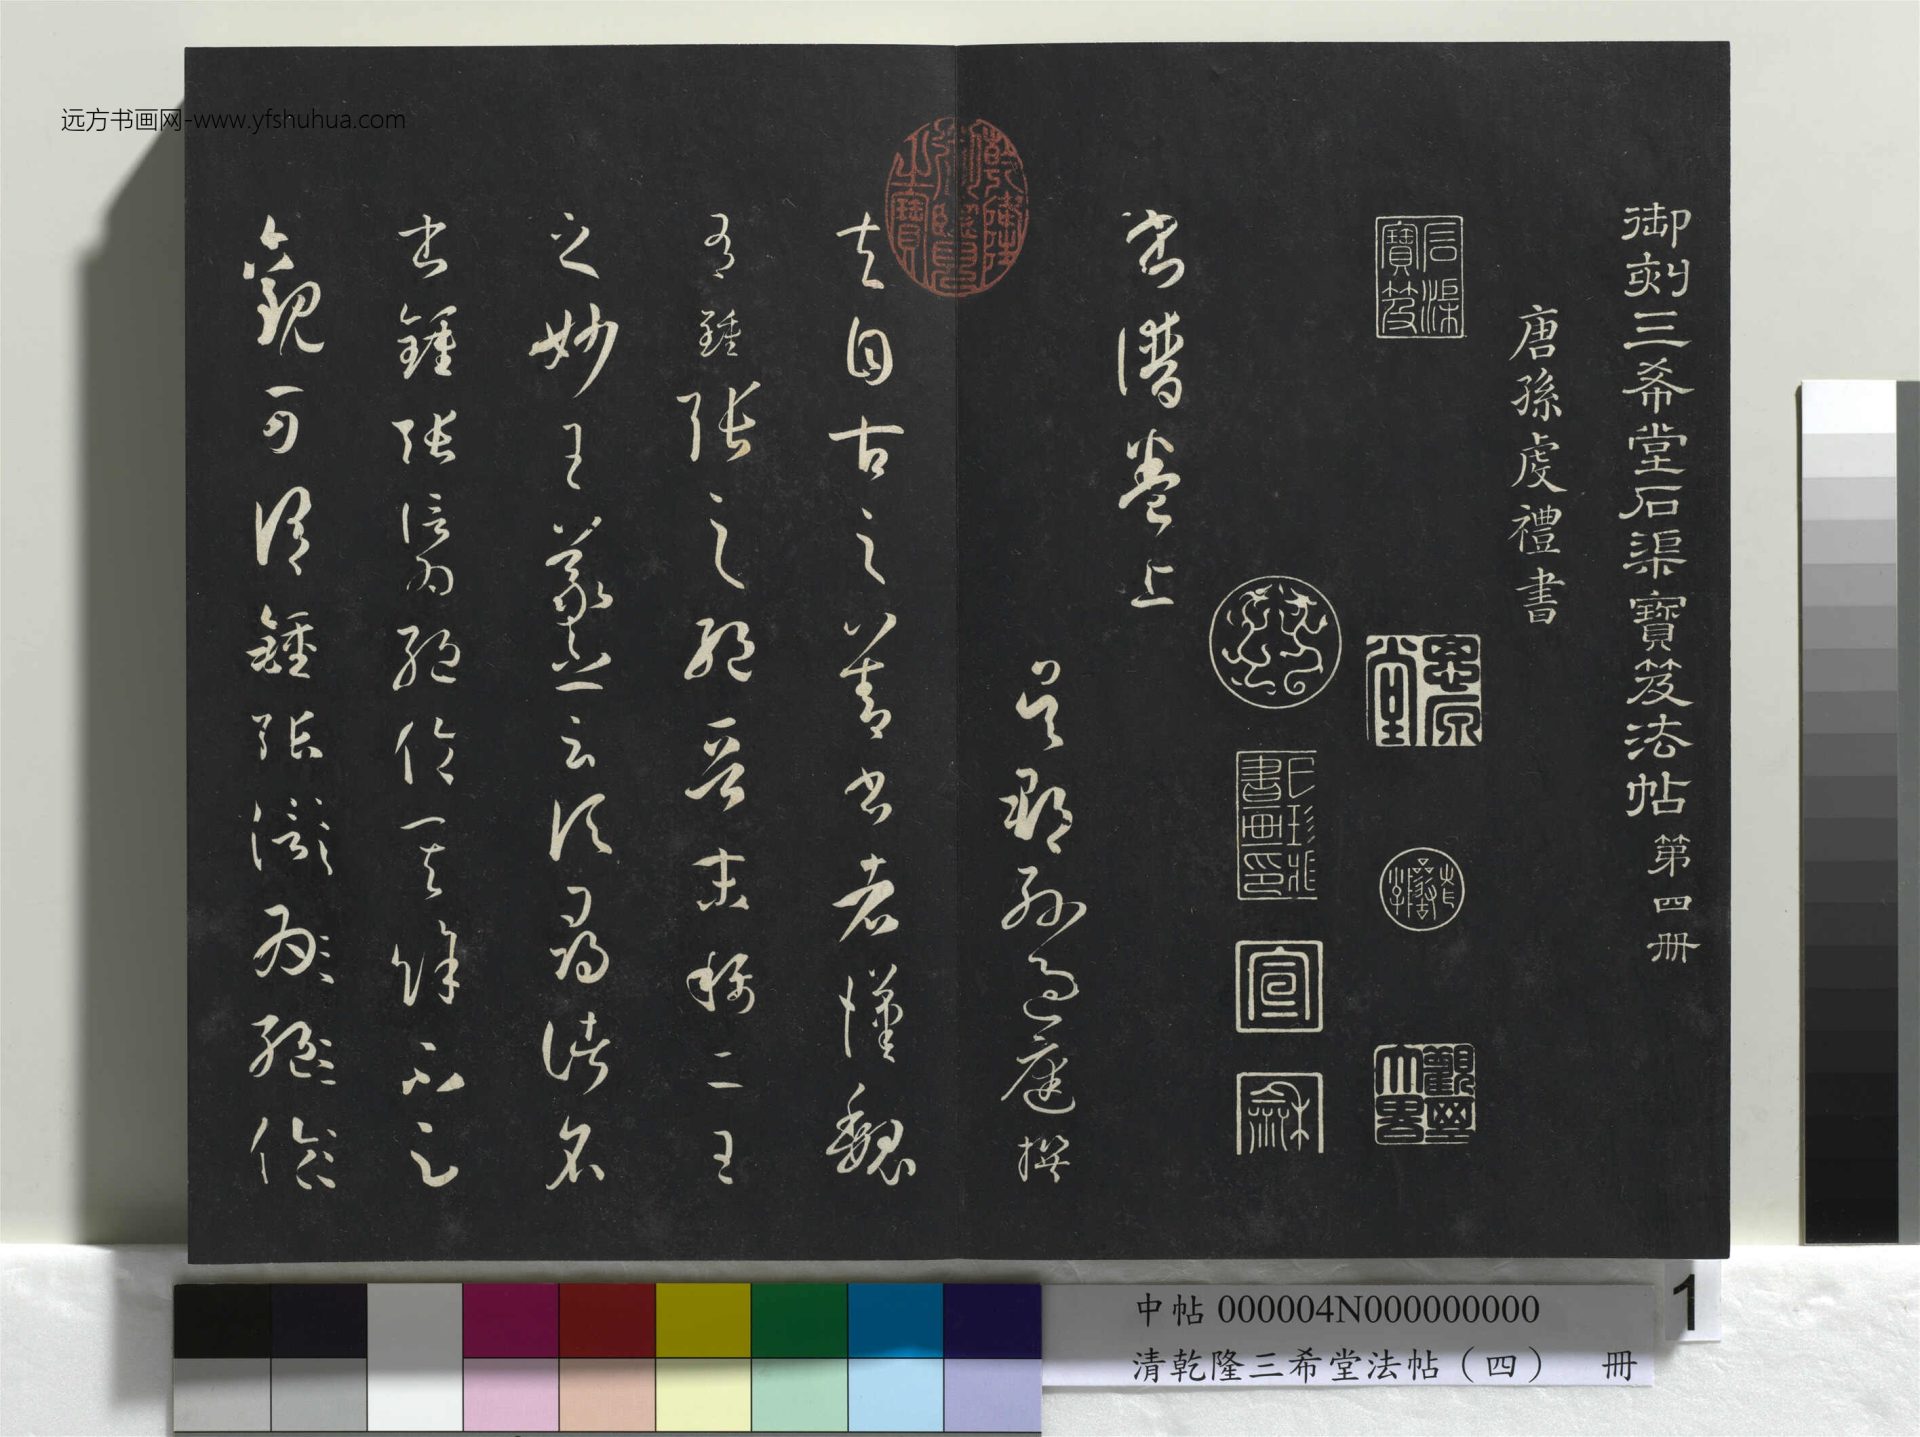 远方书画网-www.yfshuhua.com
御刻三希堂石渠寶笈法帖第四册
唐孫虔禮書
石渠寶笈
宣
龢
書譜卷上
吳郡孫過庭撰
乾隆御覽之寶
夫自古之善書者漢魏
有鍾張之絕晉末稱二王
之妙王羲之云頃尋諸名
書鍾張信為絕倫其餘不足
觀可謂鍾張信為絕倫
1
中帖 000004N000000000
清乾隆三希堂法帖（四） 冊